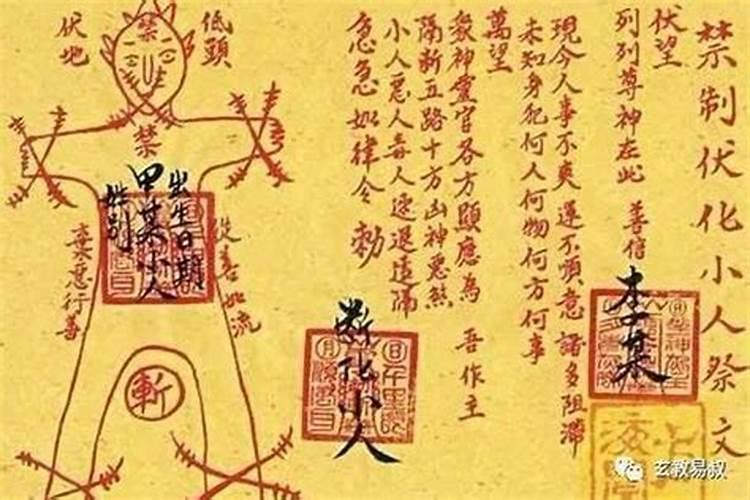 禁制伏化小人祭文
伏望
列列尊神在此 善信
李某
現今人事不爽 運不順意 諸多阻滯
未知身犯何人何物何方何事
萬望
眾神靈官各方顯應為 吾作主
隔斷五路十方凶神惡煞
小人惡人毒人速退遠隔
急急如律令 勅
斷化小人
低頭
伏地
禁
禁
出生日期
甲某小人
姓別
棄惡行善
從善如流
斬
玄教易叔